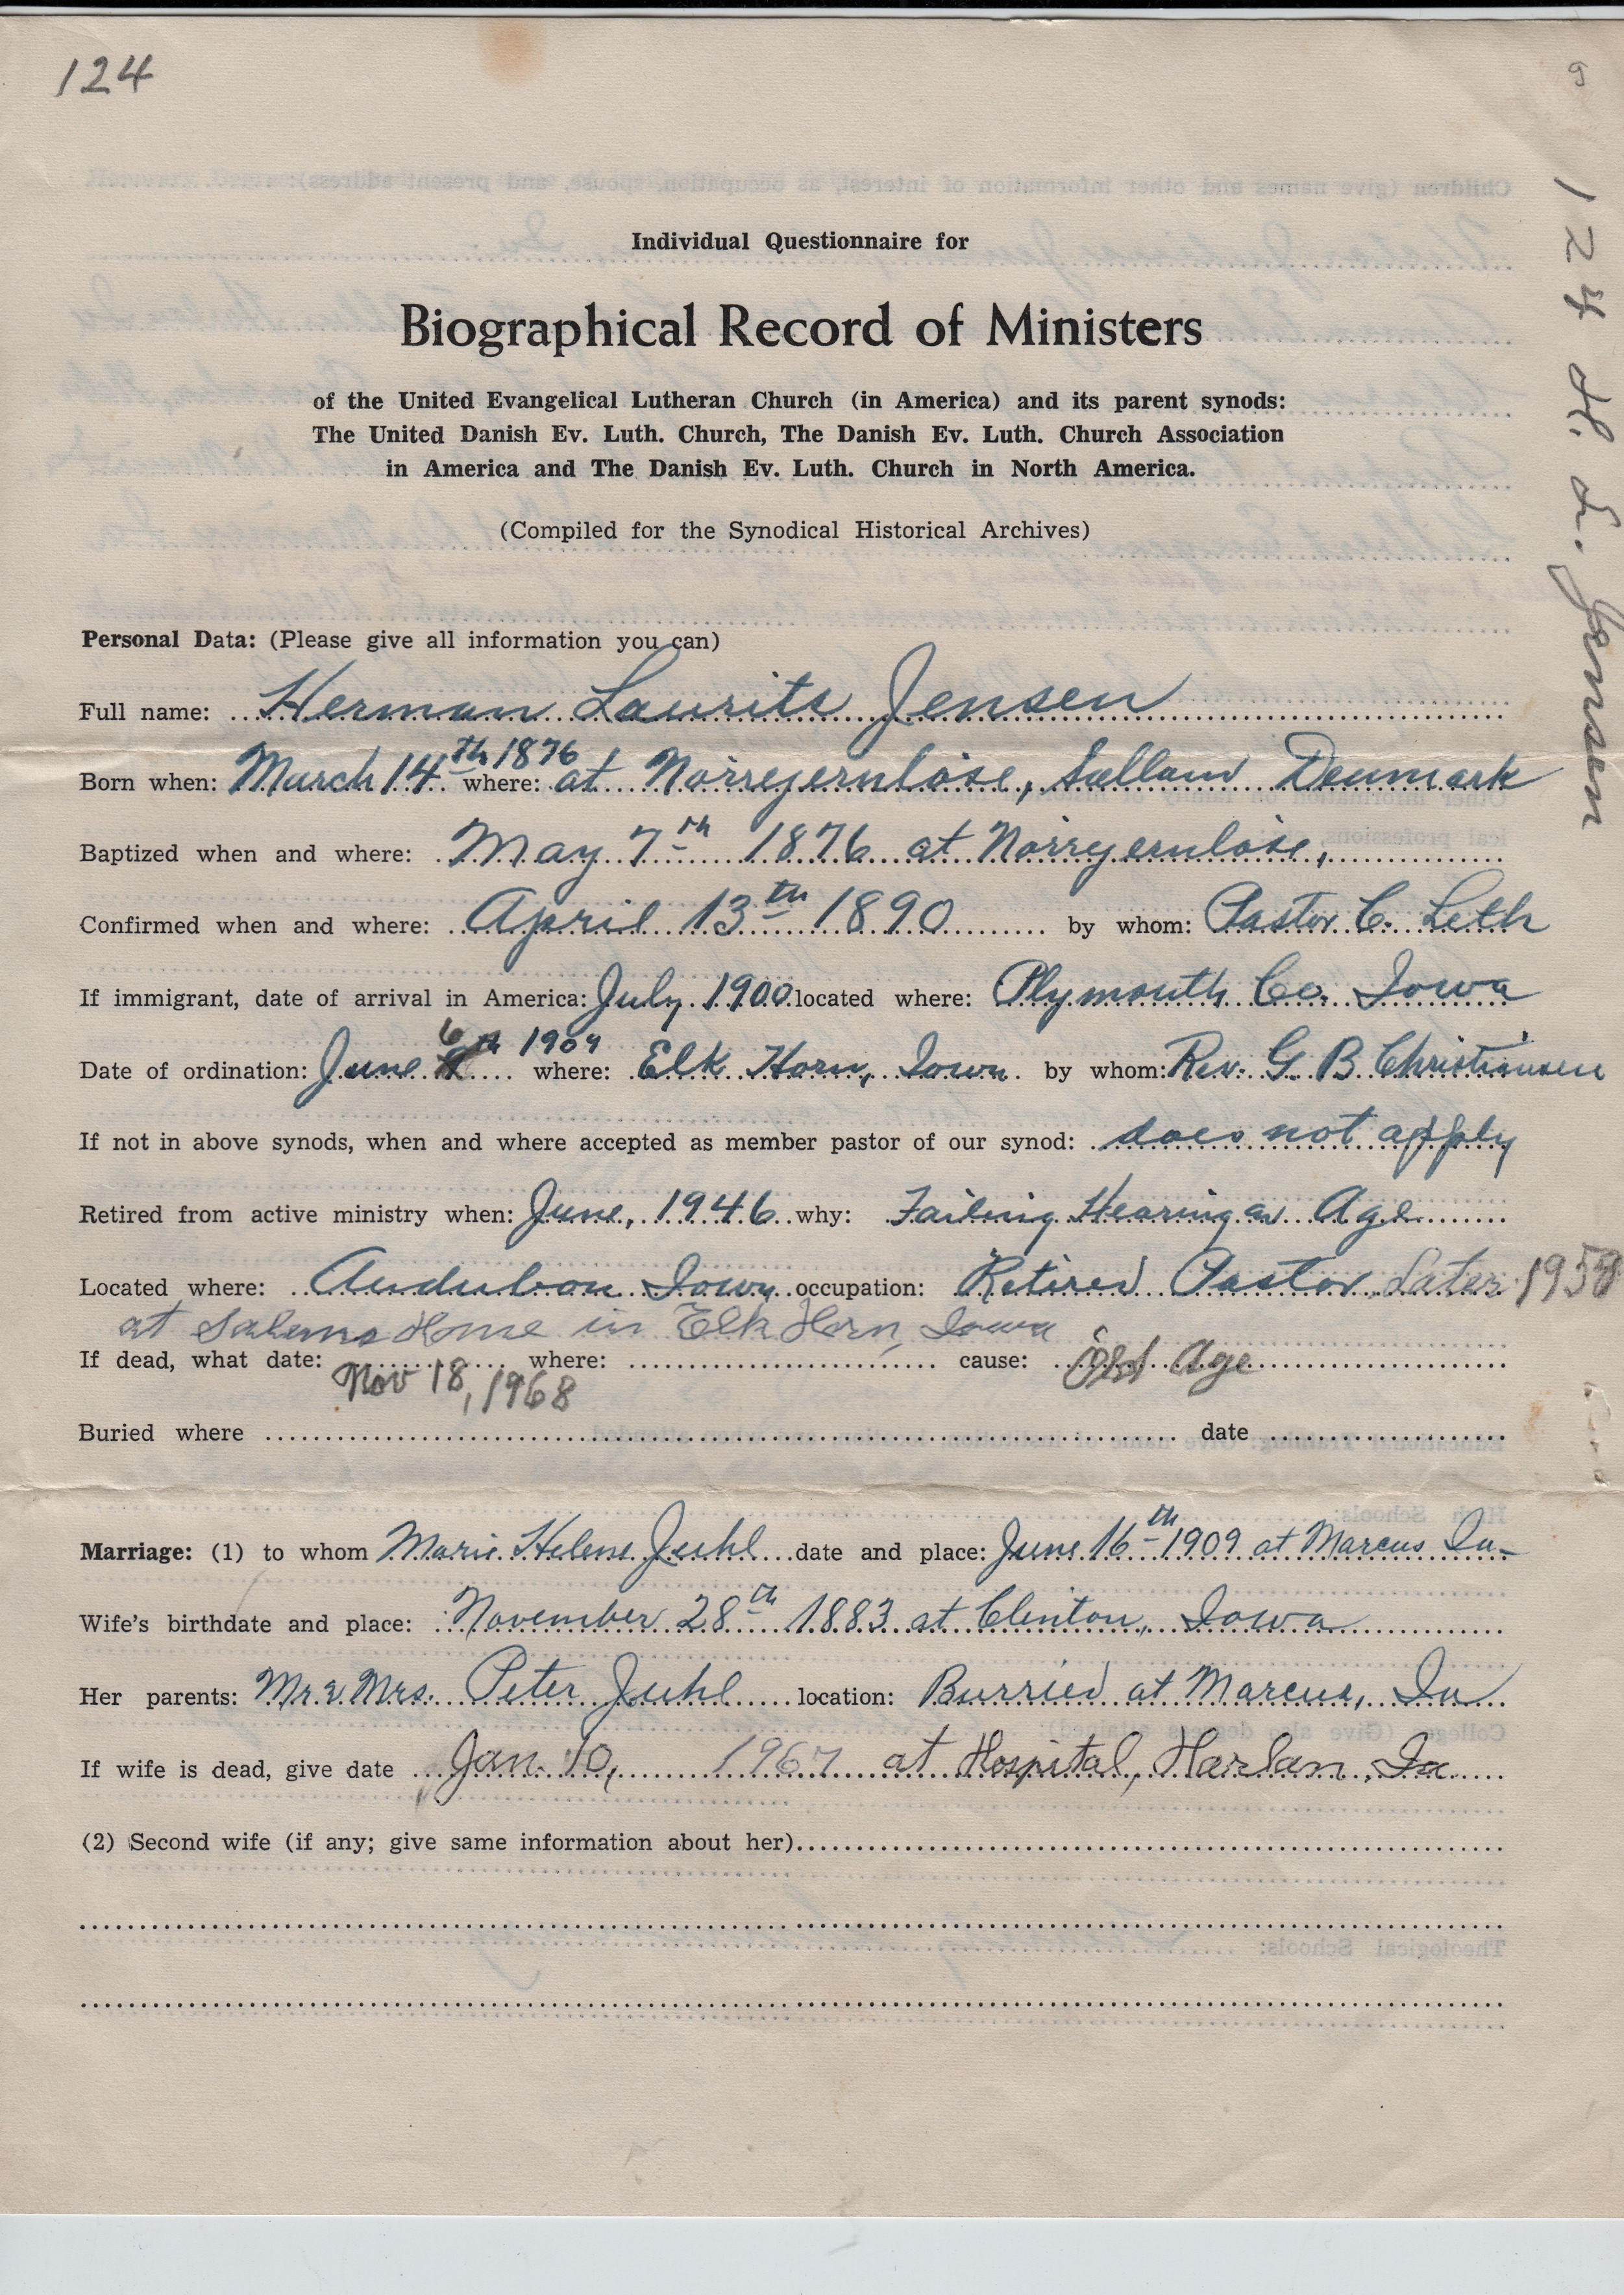 124
124 H. L. Jensen
Individual Questionnaire for
Biographical Record of Ministers
of the United Evangelical Lutheran Church (in America) and its parent synods:
The United Danish Ev. Luth. Church, The Danish Ev. Luth. Church Association
in America and The Danish Ev. Luth. Church in North America.
(Compiled for the Synodical Historical Archives)
Personal Data: (Please give all information you can)
Full name: Herman Laurits Jensen
Born when: March 14th 1876 where: at Norrejernlöse, Sælland Denmark
Baptized when and where: May 7th 1876 at Norrejernlöse,
Confirmed when and where: April 13th 1890 by whom: Pastor C. Leth
If immigrant, date of arrival in America: July 1900 located where: Plymouth Co. Iowa
Date of ordination: June 6th 1909 where: Elk Horn, Iowa by whom: Rev. G B Christiansen
If not in above synods, when and where accepted as member pastor of our synod: does not apply
Retired from active ministry when: June, 1946 why: Failing Hearing & Age
Located where: Audubon Iowa occupation: Retired Pastor Later 1958
at Salems Home in Elk Horn, Iowa
If dead, what date: Nov 18, 1968 where: cause: Old Age
Buried where date
Marriage: (1) to whom Marie Helene Juhl date and place: June 16th 1909 at Marcus Ia-
Wife's birthdate and place: November 28th 1883 at Clinton, Iowa
Her parents: Mr. & Mrs. Peter Juhl location: Burried at Marcus, Ia
If wife is dead, give date Jan. 10, 1967 at Hospital, Harlan, Ia
(2) Second wife (if any; give same information about her)